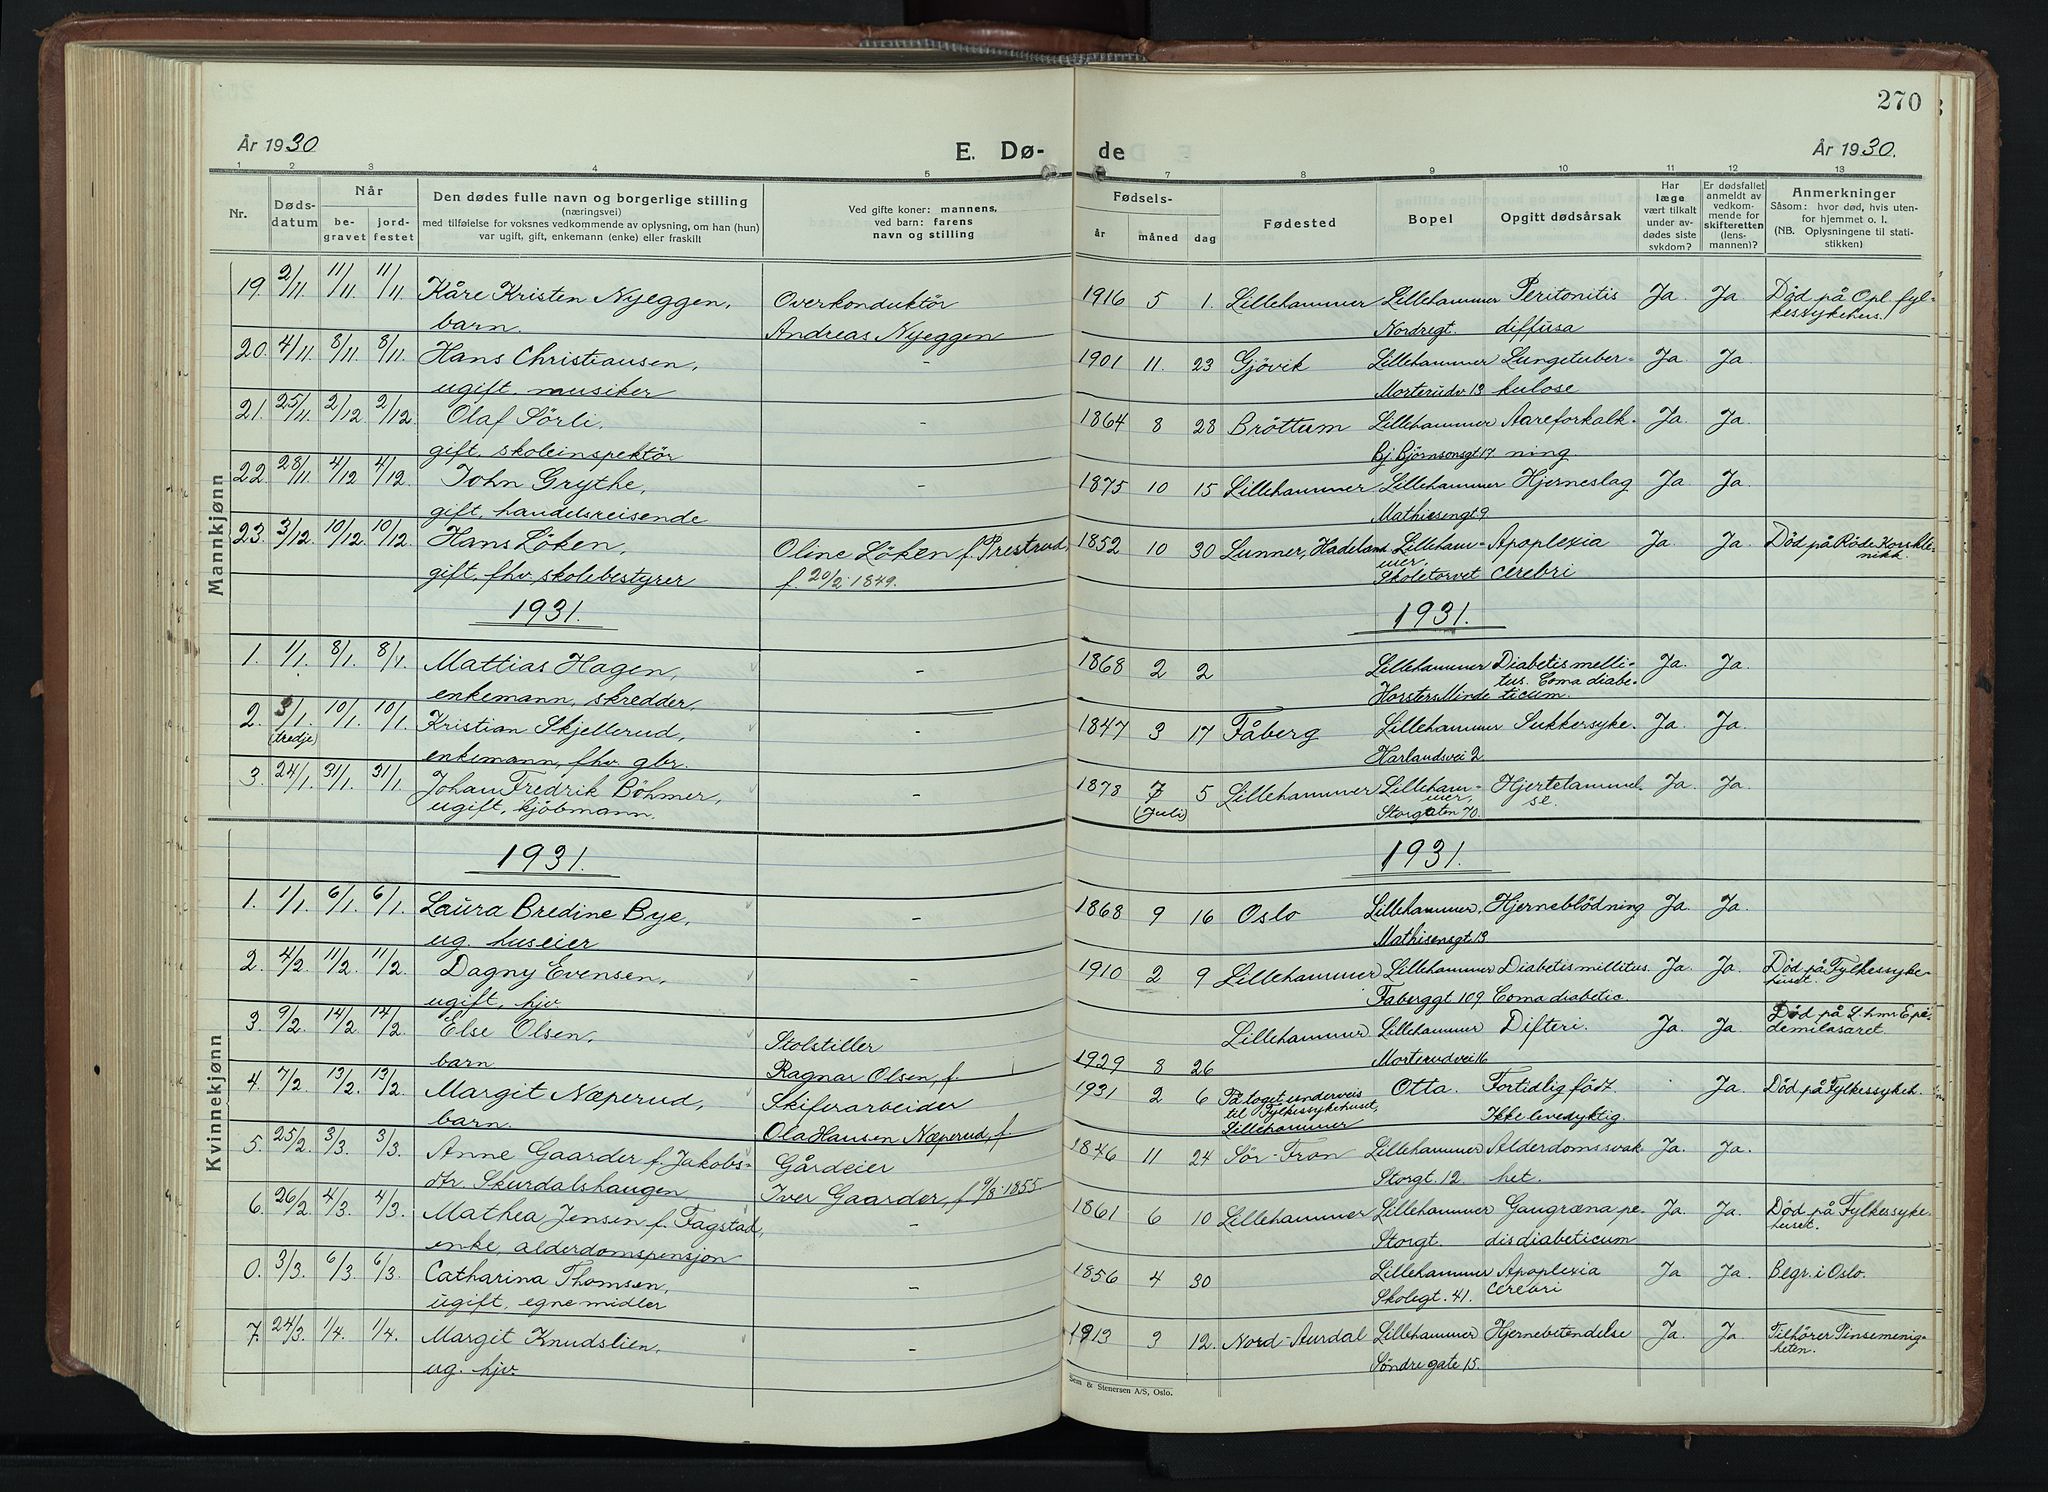 270
År 1930
E. Dø-
de
År 1930.
1 2 3 4 5
7 8 9 10 11 12 13
Nr.
Døds-
datum
Når
be-
gravet
jord-
festet
Den dødes fulle navn og borgerlige stilling
(næringsvei)
med tilføielse for voksnes vedkommende av oplysning, om han (hun)
var ugift, gift, enkemann (enke) eller fraskilt
Ved gifte koner: mannens,
ved barn: farens
navn og stilling
Fødsels-
år måned dag
Fødested
Bopel
Opgitt dødsårsak
Har
læge
vært tilkalt
under av-
dødes siste
sykdom?
Er dødsfallet
anmeldt av
vedkom-
mende for
skifteretten
(lens-
mannen)?
Anmerkninger
Såsom: hvor død, hvis uten-
for hjemmet o. l.
(NB. Oplysningene til stati-
stikken)
Mannkjønn
19. 2/11 11/11. 11/11. Kåre Kristen Nyeggen, Overkonduktör 1916 5 1. Lillehammer Lillehammer Peritonitis Ja. Ja Död på Opl. fyl-
barn. Andreas Nyeggen Nordregt. diffusa kessykehus.
20. 4/11 8/11 8/11 Hans Christiansen, - 1901 11. 23 Gjövik Lillehammer Lungetuber- Ja. Ja.
ugift, musiker Morterudv. 13 kulose
21. 25/11 2/12 2/12. Olaf Sörli, - 1864 8 28 Bröttum Lillehammer Aareforkalk- Ja. Ja.
gift, skoleinspektör Bj. Björnsonsgt 17 ning
22. 28/11. 4/12 4/12. John Grythe, - 1875 10 15 Lillehammer Lillehammer Hjerneslag Ja Ja.
gift, handelsreisende Mathiesengt 9.
23. 3/12. 10/12 10/12. Hans Löken, Oline Löken f. Prestrud, 1852 10 30 Lunner, Hadeland Lilleham- Apoplexia Ja. Ja. Död på Röde Korskli-
mer. nikk
gift, fhv. skolebestyrer f 20/2 1849. Skoletorvet cerebri
1931. 1931.
1. 1/1. 8/1. 8/1 Mattias Hagen, - 1868 2 2 Lillehammer Diabetis melli- Ja. Ja.
tus. Coma diabe-
enkemann, skredder. Horsters Minde ticum.
2. 3/1. 10/1. 10/1 Kristian Skjellerud, - 1847 3 17 Fåberg Lillehammer Sukkersyke. Ja. Ja.
(tredje)
enkemann, fhv. gbr. Harlandsvei 2.
3. 24/1. 31/1. 31/1. Johan Fredrik Böhmer, - 1878 7 5 Lillehammer Lilleham- Hjertelammel- Ja. Ja.
mer, se.
ugift, kjöbmann. (Juli) Storgaten 70.
Kvinnekjønn
1931. 1931.
1. 1/1. 6/1. 6/1. Laura Bredine Bye, - 1868 9 16 Oslo Lillehammer, Hjerneblödning Ja. Ja.
ug. huseier Mathisensgt. 13
2. 4/2. 11/2. 11/2. Dagny Evensen, - 1910 2 9 Lillehammer Lillehammer Diabetis millitus. Ja Ja. Död på Fylkessyke-
huset.
ugift, hjv. Faberggt 109. Coma diabetic.
3. 9/2. 14/2. 14/2. Else Olsen, Stolstiller Lillehammer Lillehammer Difteri. Ja. Ja Död på L.hmr Epi-
demilasaret.
barn Ragnar Olsen, f. 1929 8 26 Morterudvei 16
4. 7/2. 13/2. 13/2. Margit Næperud, Skiferarbeider 1931 2 6 På toget underveis Otta. Fortidlig födt. Ja. Död på Fylkessykeh.
til Fylkessykehuset,
barn. Ola Hansen Næperud, f. Lillehammer Ikke levedyktig.
5. 25/2. 3/3. 3/3. Anne Gaarder f. Jakobs- Gårdeier 1846 11 24 Sör-Fron Lillehammer Alderdomssvak- Ja. Ja.
dtr. Skurdalshaugen Iver Gaarder, f 9/8 1855. Storgt. 12 het.
6. 26/2. 4/3. 4/3. Mathea Jensen f. Fagstad, - 1861 6 10 Lillehammer Lillehammer Gangræna pe- Ja. Ja. Död på Fylkessyke-
huset.
enke, alderdomspensjon Storgt. dis diabeticum
0. 3/3. 6/3. 6/3. Catharina Thomsen, - 1856 4 30 Lillehammer Apoplexia Ja Ja. Begr. i Oslo.
ugift, egne midler Skolegt. 41. cerebri
7. 24/3. 1/4. 1/4. Margit Knudslien, - 1913 3 12. Nord-Aurdal Lillehammer Hjernebetendelse Ja. Ja. Tilhörer Pinsemenig-
heten.
ug. hjv. Söndre gate 15.
Sem & Stenersen A/S, Oslo.